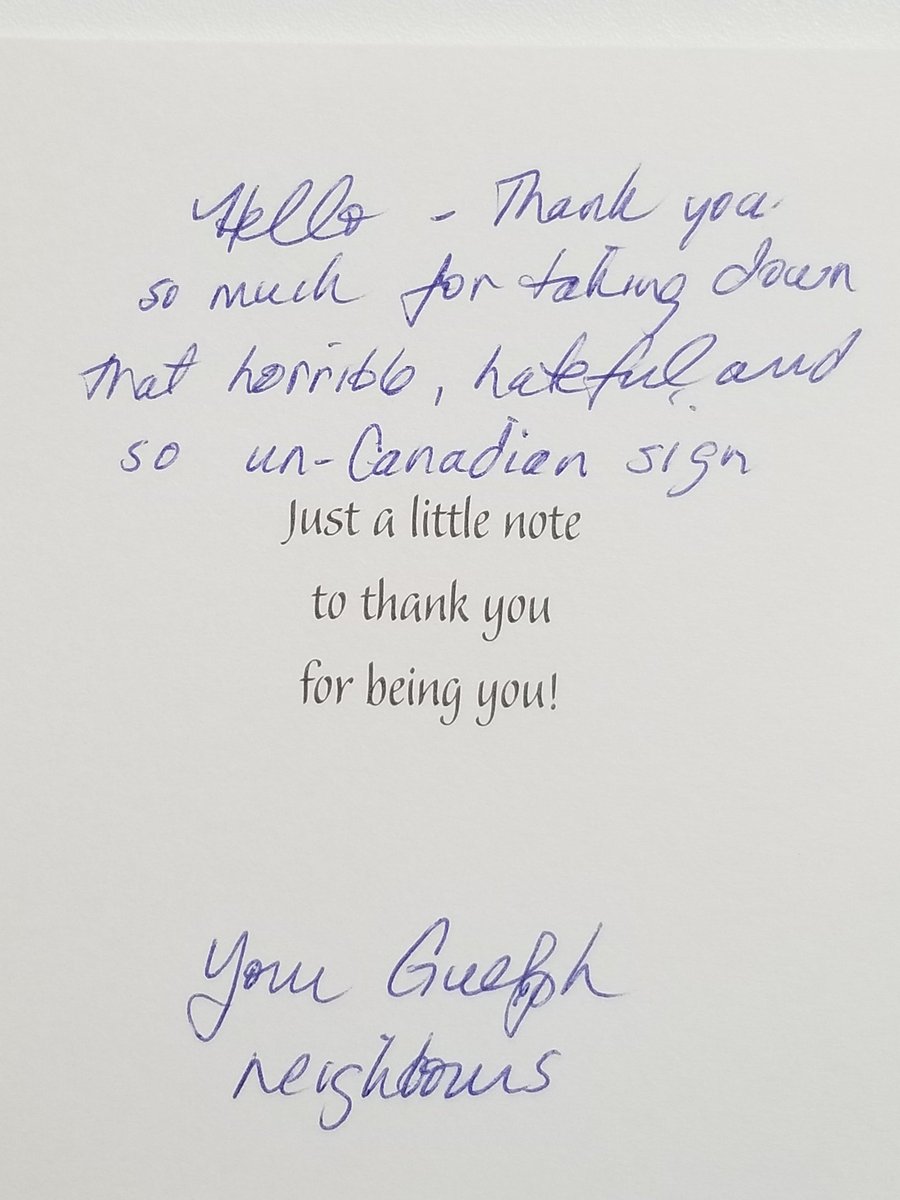 Hello - Thank you
so much for taking down
that horrible, hateful, and
so un-Canadian sign
Just a little note
to thank you
for being you!
Your Guelph
neighbours